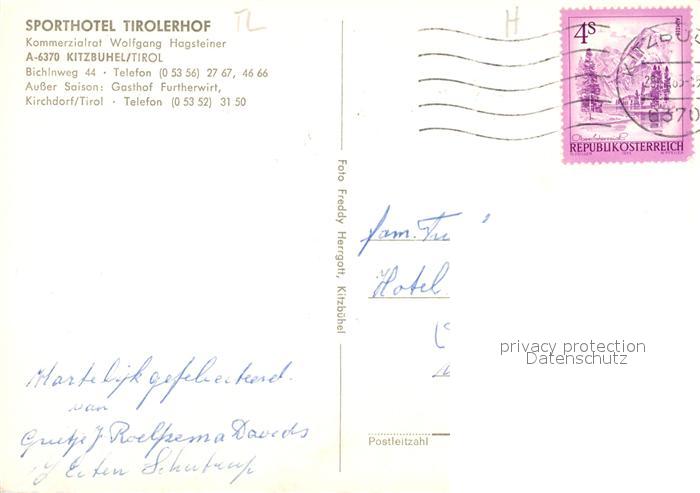 SPORTHOTEL TIROLERHOF
TL
H
Kommerzialrat Wolfgang Hagsteiner
A-6370 KITZBUHEL/TIROL
Bichlnweg 44 · Telefon (0 53 56) 27 67, 46 66
Außer Saison: Gasthof Furtherwirt,
Kirchdorf/Tirol · Telefon (0 53 52) 31 50
4S
REPUBLIK ÖSTERREICH
KITZBÜ
6370
Foto Freddy Herrgott, Kitzbühel
fam. Tu
Hotel
privacy protection
Datenschutz
Postleitzahl
Hartelijk gefeliciteerd.
van
Roelfsema Davids